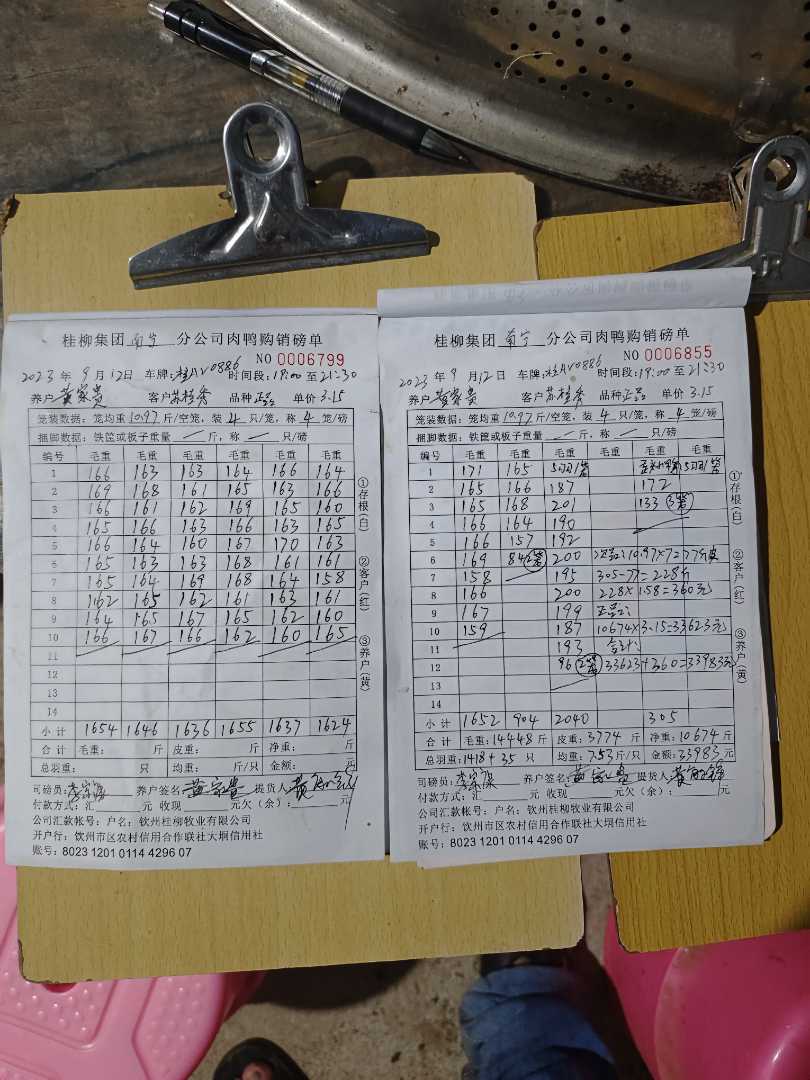 桂柳集团 南宁 分公司肉鸭购销磅单
NO 0006799
2023 年 9 月 12 日 车牌:桂AV0886 时间段:19:00 至 21:30
养户 黄家贵 客户 苏桂秀 品种 正品 单价 3.15
笼装数据: 笼均重 10.97 斤/空笼, 装 4 只/笼, 称 4 笼/磅
捆脚数据: 铁筐或板子重量 斤, 称 只/磅
编号 毛重 毛重 毛重 毛重 毛重 毛重
1 166 163 163 164 166 164
2 169 168 161 165 163 166
3 166 161 162 169 165 160
4 165 166 163 166 163 165
5 166 164 160 167 170 163
6 165 163 163 168 161 161
7 165 164 169 168 164 158
8 162 165 162 161 163 161
9 164 165 167 165 162 160
10 166 167 166 162 160 165
11
12
13
14
小计 1654 1646 1636 1655 1637 1624
合计 毛重: 斤 皮重: 斤 净重: 斤
总羽重: 只 均重: 斤/只 金额: 元
司磅员: 养户签名: 黄家贵 提货人:
付款方式: 汇 元 收现 元欠(余): 元
公司汇款帐号: 户名: 钦州桂柳牧业有限公司
开户行: 钦州市区农村信用合作联社大垌信用社
账号: 8023 1201 0114 4296 07
①存根(白)
②客户(红)
③养户(黄)
桂柳集团 南宁 分公司肉鸭购销磅单
NO 0006855
2023 年 9 月 12 日 车牌:桂AV0886 时间段:19:00 至 21:30
养户 黄家贵 客户 苏桂秀 品种 正品 单价 3.15
笼装数据: 笼均重 10.97 斤/空笼, 装 4 只/笼, 称 4 笼/磅
捆脚数据: 铁筐或板子重量 斤, 称 只/磅
编号 毛重 毛重 毛重 毛重 毛重 毛重
1 171 165 5羽/笼 5羽/笼
2 165 166 187 172
3 165 168 201 133 3笼
4 166 164 190
5 166 157 192
6 169 84 2笼 200 10.97×7=77斤
7 158 195 305-77=228斤
8 166 200 228×1.58=360元
9 167 199 正品:
10 159 187 10674×3.15=33623元
11 193 合计:
12 96 2笼 33623+360=33983元
13
14
小计 1652 904 2040 305
合计 毛重: 14448 斤 皮重: 3774 斤 净重: 10674 斤
总羽重: 1418+35 只 均重: 7.53 斤/只 金额: 33983 元
司磅员: 养户签名: 黄家贵 提货人:
付款方式: 汇 元 收现 元欠(余): 元
公司汇款帐号: 户名: 钦州桂柳牧业有限公司
开户行: 钦州市区农村信用合作联社大垌信用社
账号: 8023 1201 0114 4296 07
①存根(白)
②客户(红)
③养户(黄)